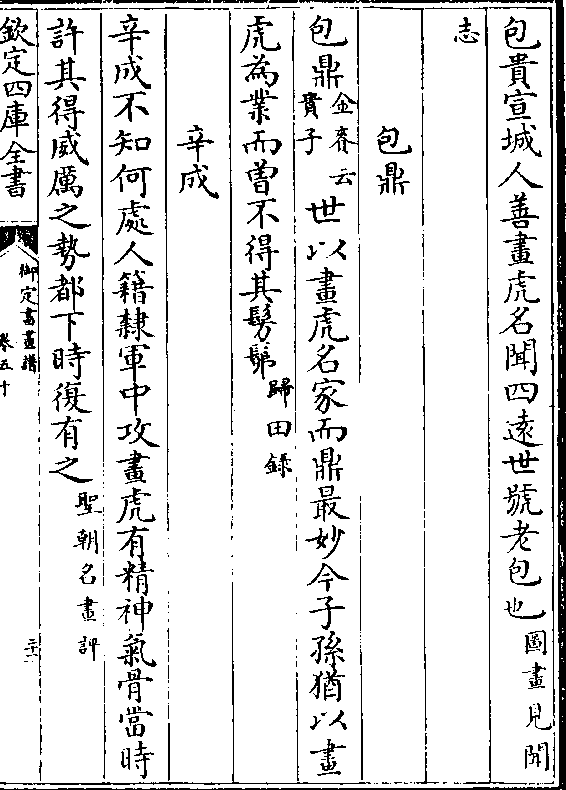 包貴宣城人善畫虎名聞四遠世號老包也圖畫見聞
志
包鼎
包鼎金賚云貴子世以畫虎名家而鼎最妙今子孫猶以畫
虎為業而曽不得其髣髴歸田録
辛成
辛成不知何處人籍隸軍中攻畫虎有精神氣骨當時
許其得威厲之勢都下時復有之聖朝名畫評
欽定四庫全書
御定書畫譜
卷五十
二十二